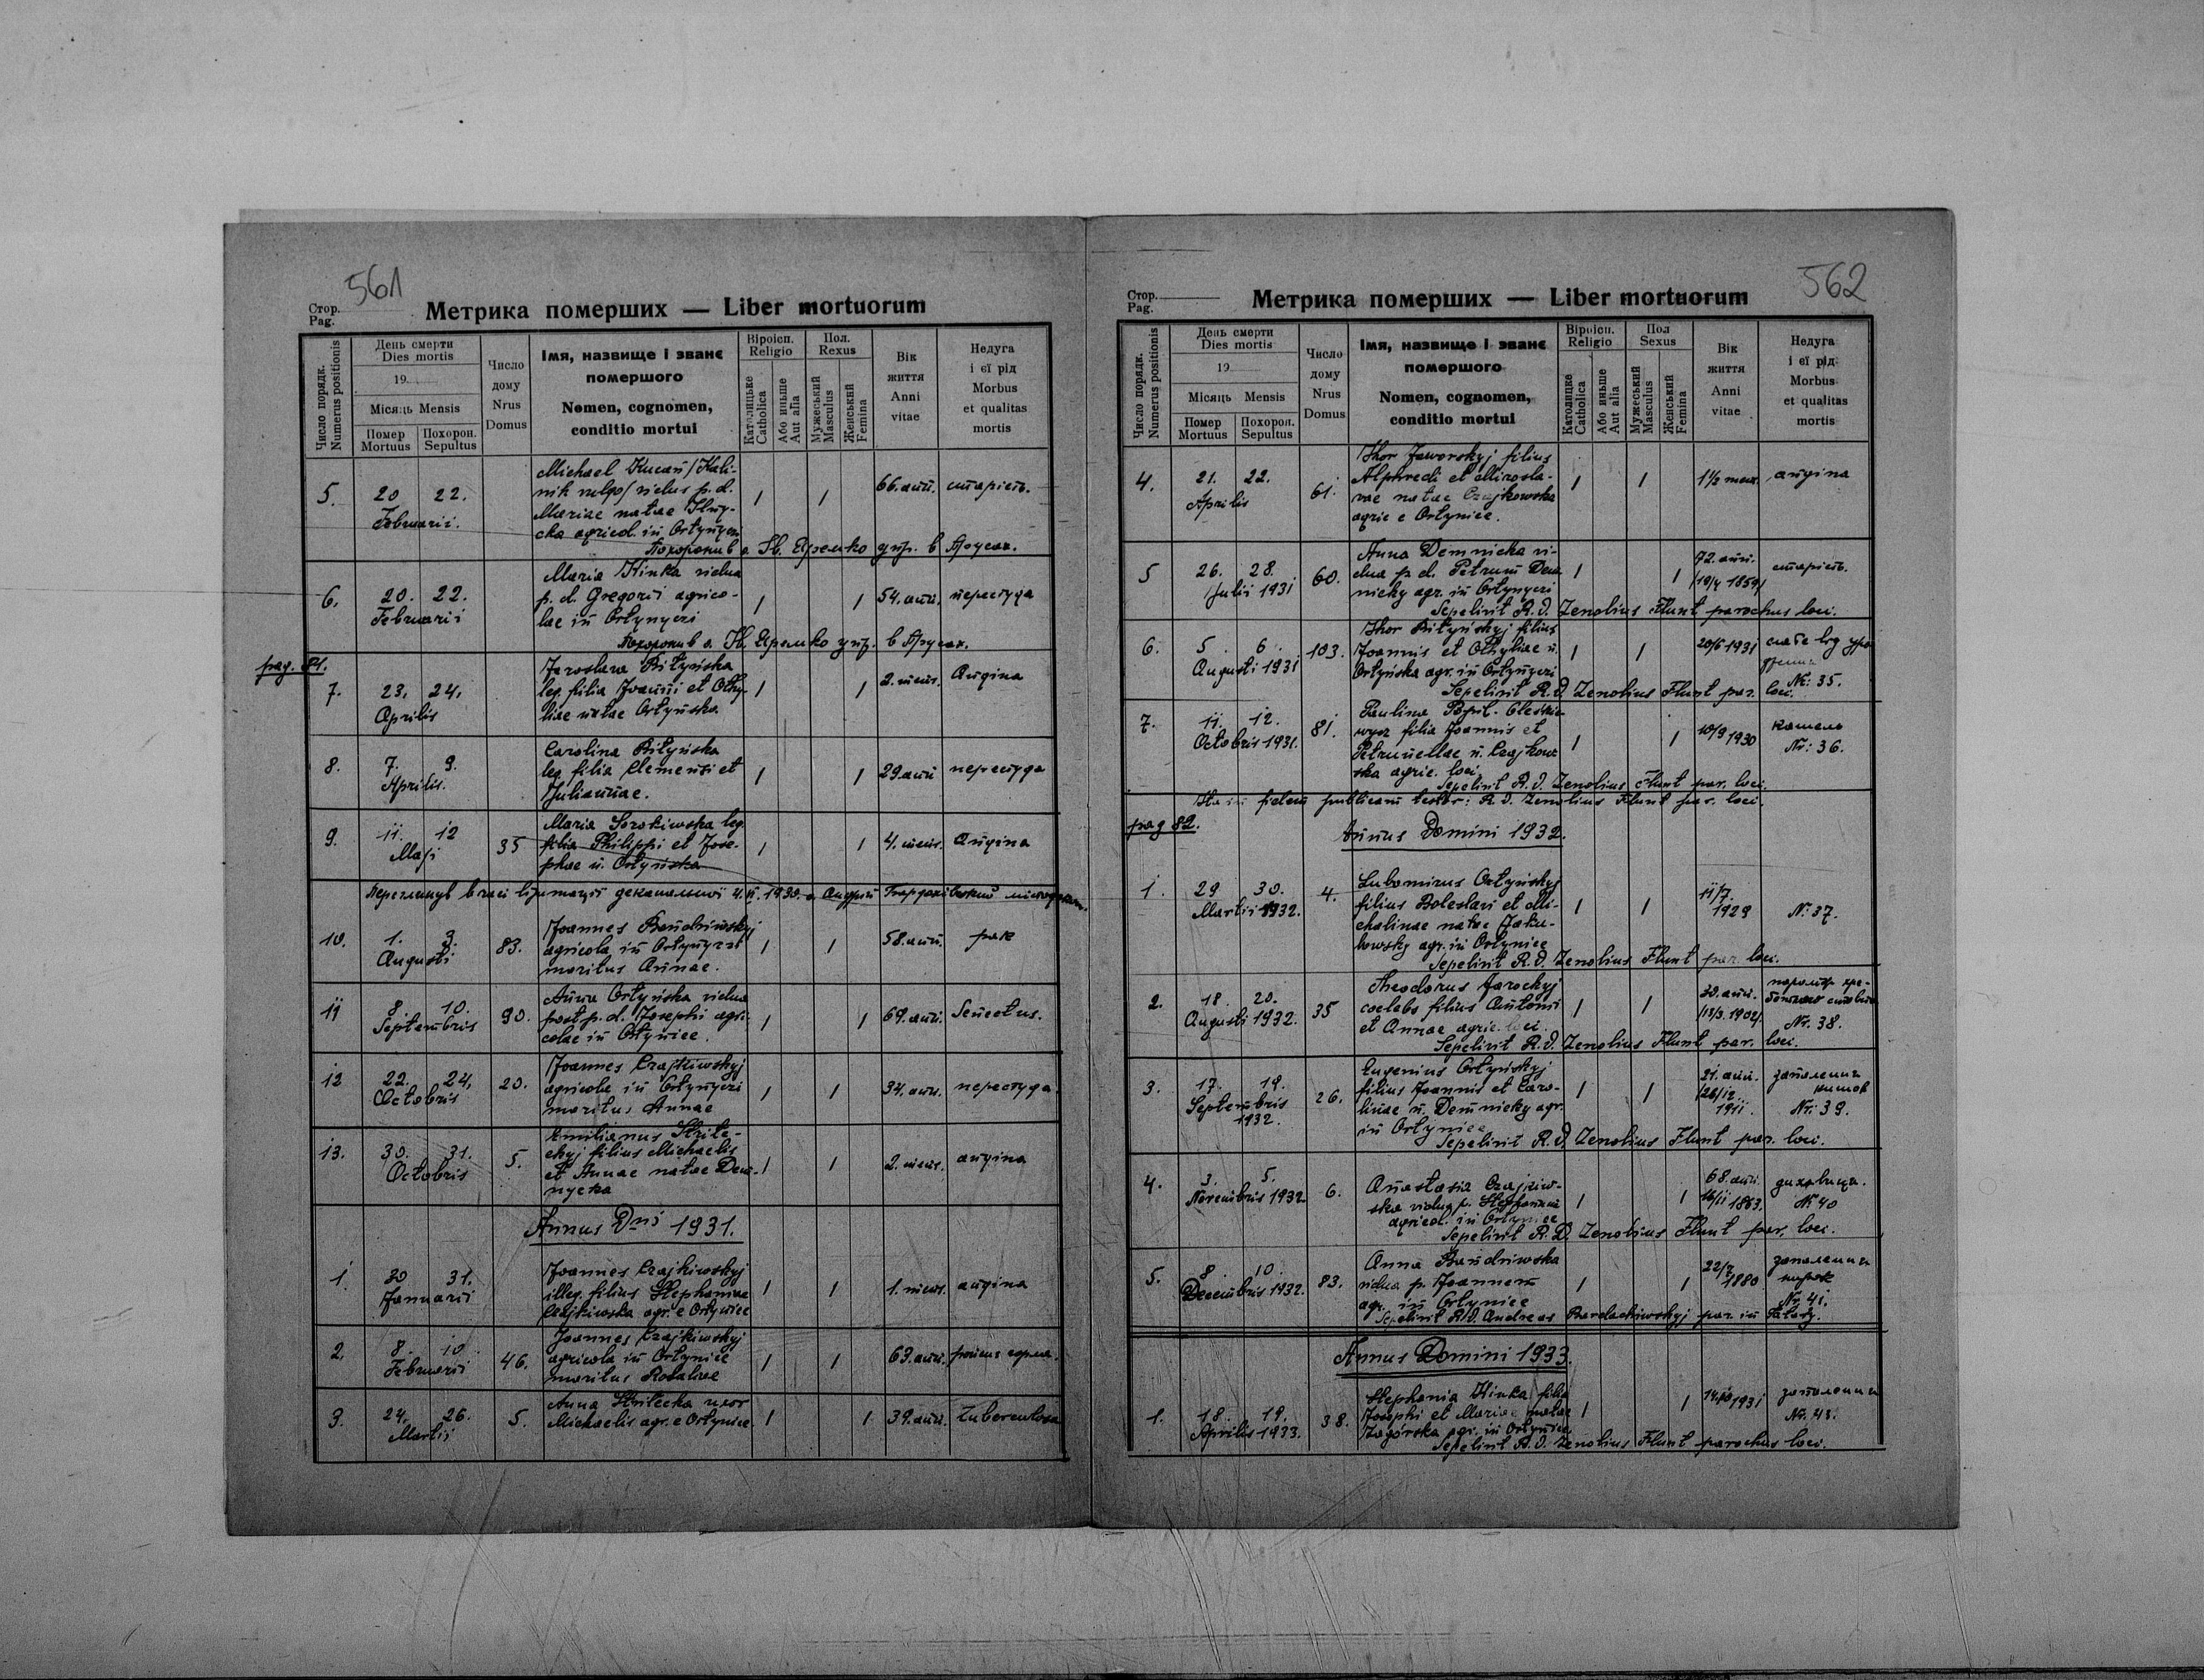 561
Стор.
Pag.
Метрика померших — Liber mortuorum
Число порядк.
Numerus positionis
День смерти
Dies mortis
19
Місяць Mensis
Помер
Mortuus
Похорон.
Sepultus
Число
дому
Nrus
Domus
Імя, назвище і званє
помершого
Nomen, cognomen,
conditio mortui
Віроісп.
Religio
Католицке
Catholica
Або иньше
Aut alia
Пол.
Rexus
Мужеський
Masculus
Женський
Femina
Вік
життя
Anni
vitae
Недуга
і єї рід
Morbus
et qualitas
mortis
5. 20 22.
Februarii.
Michael /Kali-
nik vulgo/ vidus p. d.
Mariae natae
agricol. in Ortynyci
66. ann. старість.
Похоронив о. Яремко упр. в Прусах.
6. 20. 22.
Februarii
Maria Hinka vidua
p. d. Gregorii agrico-
lae in Ortynyci
54. ann. перестуда
Похоронив о. Яремко упр. в Прусах.
pag. 81.
7. 23. 24.
Aprilis
Jaroslava Bilyńska
leg. filia Joanni et Othy-
liae natae Ortyńska
2. mens. Angina
8. 7. 9.
Aprilis.
Carolina Bilyńska
leg. filia Clementi et
Juliannae.
29. ann перестуда
9. 11. 12
Maji
35
Maria Sorokiwska leg.
filia Philippi et Jose-
phae n. Ortyńska
4. mens. Angina
Переглянув в часі візитації деканальної 1930. о. Андрій Бардахівський
10. 1. 3.
Augusti
83.
Joannes Bandriwskyj
agricola in Ortynyci
maritus Annae.
58. ann. рак
11 8. 10.
Septembris
90.
Anna Ortyńska vidua
post p. d. Josephi agri-
colae in Ortynice.
69. ann. Senectus.
12 22. 24.
Octobris
20.
Joannes Czajkiwskyj
agricola in Ortynyci
maritus Annae
34. ann. перестуда
13. 30. 31.
Octobris
5.
Emilianus Strile-
ckyj filius Michaelis
et Annae natae Dem-
nycka
2. mens. angina
Annus Dni 1931.
1. 30 31.
Januarii
Joannes Czajkiwskyj
illeg. filius Stephaniae
Czajkiwska agr. e Ortynice
1. mens. angina
2. 8. 10.
Februarii
46.
Joannes Czajkiwskyj
agricola in Ortynice
maritus Rosaliae
63. ann.
3. 24. 26.
Martii
5.
Anna Strilecka uxor
Michaelis agr. e Ortynice
39. ann. Tuberculosa
562
Стор.
Pag.
Метрика померших — Liber mortuorum
Число порядк.
Numerus positionis
День смерти
Dies mortis
19
Місяць Mensis
Помер
Mortuus
Похорон.
Sepultus
Число
дому
Nrus
Domus
Імя, назвище і званє
помершого
Nomen, cognomen,
conditio mortui
Віроісп.
Religio
Католицке
Catholica
Або иньше
Aut alia
Пол
Sexus
Мужеський
Masculus
Женський
Femina
Вік
життя
Anni
vitae
Недуга
і єї рід
Morbus
et qualitas
mortis
4. 21. 22.
Aprilis
61.
Ihor Jaworskyj filius
Alphredi et Mirosla-
vae natae Czajkowska
agric e Ortynice.
1½ mens. angina
5 26. 28.
Julii 1931
60.
Anna Demnicka vi-
dua p. d. Petrum Dem-
nicky agr. in Ortynyci
72. ann.
1859/
старість.
Sepelivit R. d. Zenobius Flunt parochus loci.
6. 5. 6.
Augusti 1931
103.
Ihor Bilyńskyj filius
Joannis et Othyliae n.
Ortyńska agr. in Ortynyci
20/6 1931
слабе від уро
Nr: 35.
Sepelivit R. d. Zenobius Flunt par. loci.
7. 11. 12.
Octobris 1931.
81.
Paulina Popil-
filia Joannis et
Petrunellae n. Czajkow
ska agric. loci.
10/9 1930
кашель
Nr: 36.
Sepelivit R. d. Zenobius Flunt par. loci.
Ita in fidem publicam testor: R. d. Zenobius Flunt par. loci.
pag 82.
Annus Domini 1932.
1. 29 30.
Martii 1932.
4.
Lubomirus Ortyńskyj
filius Boleslavi et Mi-
chalinae natae Jaku-
bowsky agr. in Ortynice
11/7.
1929
Nr 37.
Sepelivit R. d. Zenobius Flunt par. loci.
2. 18. 20.
Augusti 1932.
35
Theodorus Jarockyj
coelebs filius Antoni
et Annae agric. loci.
30. ann.
/13/3. 1902/.
Nr. 38.
Sepelivit R. d. Zenobius Flunt par. loci.
3. 17. 19.
Septembris
1932.
26.
Eugenius Ortyńskyj
filius Joannis et Caro-
linae n. Demnicky agr.
in Ortynice
21. ann.
1911.
запаленнє
кишок
Nr: 39.
Sepelivit R. d. Zenobius Flunt par. loci.
4. 3. 5.
Novembris 1932
6.
Anastasia Czajkiw-
ska vidua p. Stephanum
agricol. in Ortynice
68. ann.
16/11 1863.
духавиця.
Nr 40
Sepelivit R. D. Zenobius Flunt par. loci.
5. 8. 10.
Decembris 1932.
83.
Anna Bandriwska
vidua p. Joannem
agr. in Ortynice
22/7
1880
запаленнє
нирок
Nr. 41.
Sepelivit R. d. Andreas Bardachiwskyj par. in
Annus Domini 1933.
1. 18. 19.
Aprilis 1933.
38.
Stephania Hinka filia
Josephi et Mariae natae
Zagórska agr. in Ortynice
1931
запаленнє
Nr. 43.
Sepelivit R. d. Zenobius Flunt parochus loci.